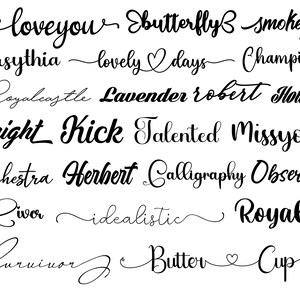 iloveyou Butterfly smoke
sythia lovely days Champi
Royalcastle Lavender robert Hol
ight Kick Talented Missyo
hestra Herbert Calligraphy Obser
idealistic Royal
Survivor Butter Cup